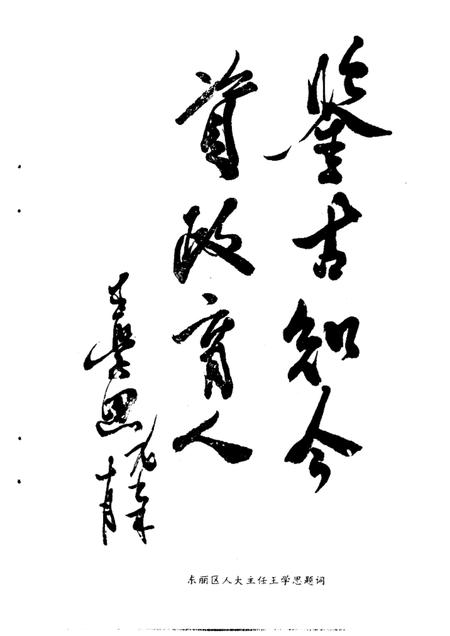 鉴古知今
资政育人
王學思
十月
东丽区人大主任王学思题词